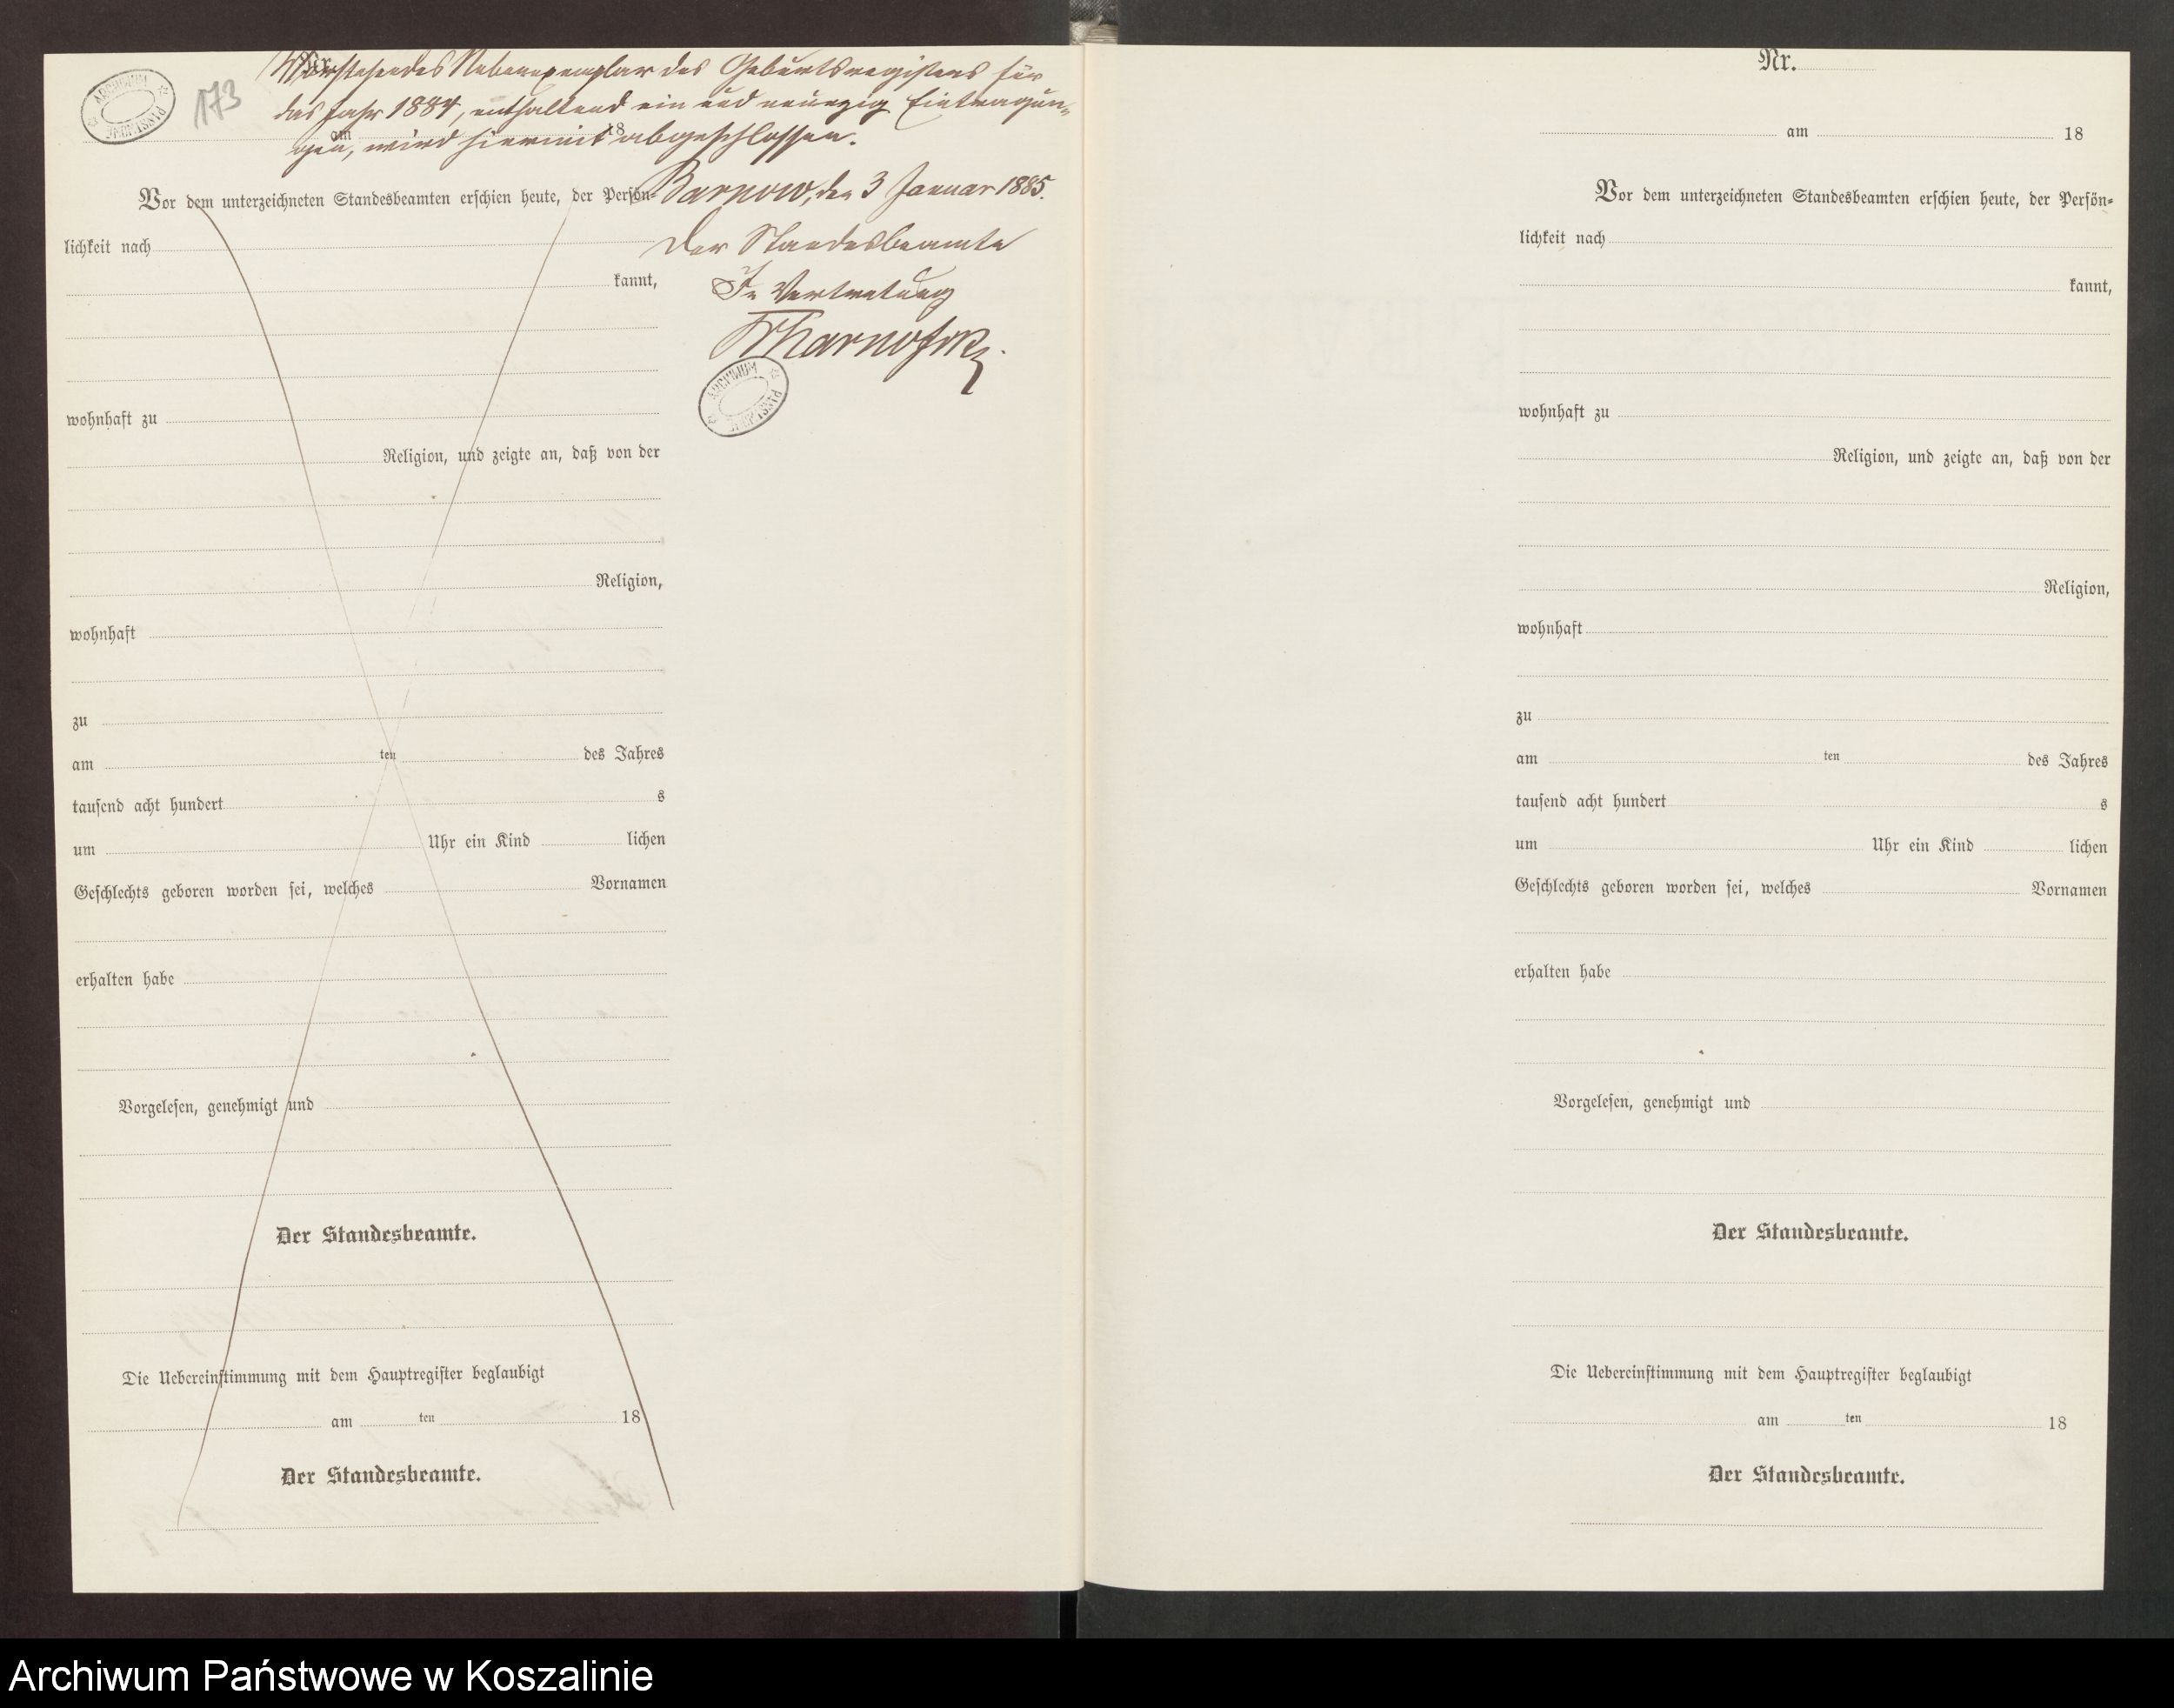 173
Nr.
Vorstehendes Nebenexemplar des Geburtsregisters für
das Jahr 1884, enthaltend ein und neunzig Eintragun-
gen, wird hiermit abgeschlossen.
am 18
Barnow, den 3 Januar 1885.
Der Standesbeamte
In Vertretung
ARCHIWUM PAŃSTWOWE
Vor dem unterzeichneten Standesbeamten erschien heute, der Persön-
lichkeit nach
kannt,
wohnhaft zu
Religion, und zeigte an, daß von der
Religion,
wohnhaft
zu
am ten des Jahres
tausend acht hundert s
um Uhr ein Kind lichen
Geschlechts geboren worden sei, welches Vornamen
erhalten habe
Vorgelesen, genehmigt und
Der Standesbeamte.
Die Uebereinstimmung mit dem Hauptregister beglaubigt
am ten 18
Der Standesbeamte.
Nr.
am 18
Vor dem unterzeichneten Standesbeamten erschien heute, der Persön-
lichkeit nach
kannt,
wohnhaft zu
Religion, und zeigte an, daß von der
Religion,
wohnhaft
zu
am ten des Jahres
tausend acht hundert s
um Uhr ein Kind lichen
Geschlechts geboren worden sei, welches Vornamen
erhalten habe
Vorgelesen, genehmigt und
Der Standesbeamte.
Die Uebereinstimmung mit dem Hauptregister beglaubigt
am ten 18
Der Standesbeamte.
Archiwum Państwowe w Koszalinie